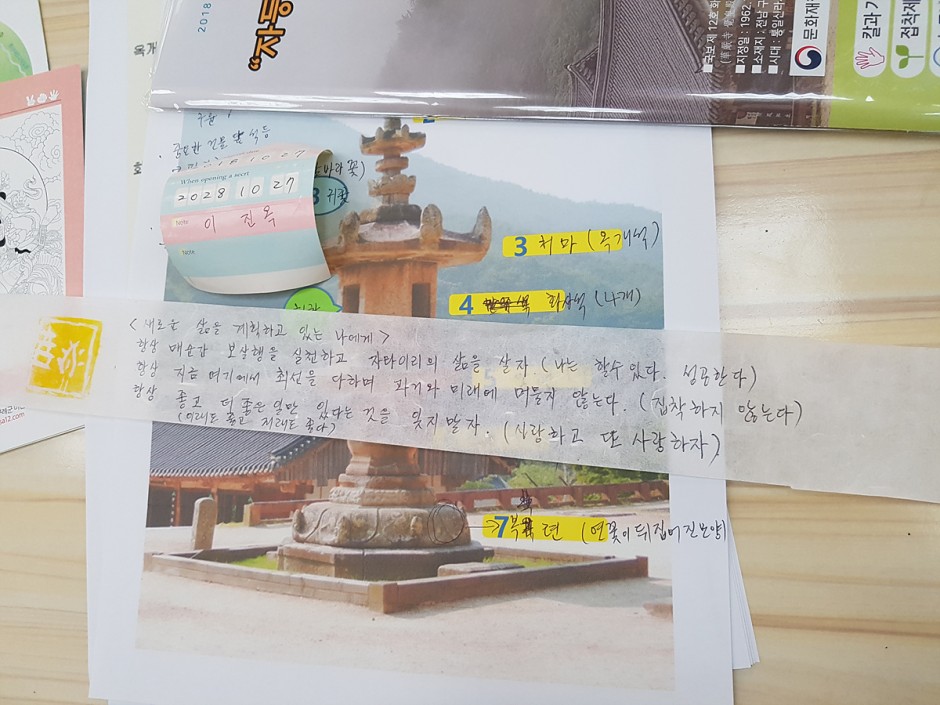 2018
"자등
국보 제 12호
지정일 : 1962.
소재지 : 전남 구
시대 : 통일신라
문화재
칼과 가
접착제
옥개
중요한 건물 앞 석등
바라 꽃)
귀꽃
When opening a seen
2028 10 27
Note 이 진옥
Note
3 처마 (옥개석)
4 화사석 (4개)
<새로운 삶을 계획하고 있는 나에게>
항상 매순간 보살행을 실천하고 자타이리의 삶을 살자 (나는 할수있다. 성공한다)
항상 지금 여기에서 최선을 다하며 과거와 미래에 머물지 않는다. (집착하지 않는다)
항상 좋고 더 좋은 일만 있다는 것을 잊지말자. (사랑하고 또 사랑하자)
(이래도 좋고 저래도 좋다)
7 복련 (연꽃이 뒤집어진모양)
a12.com